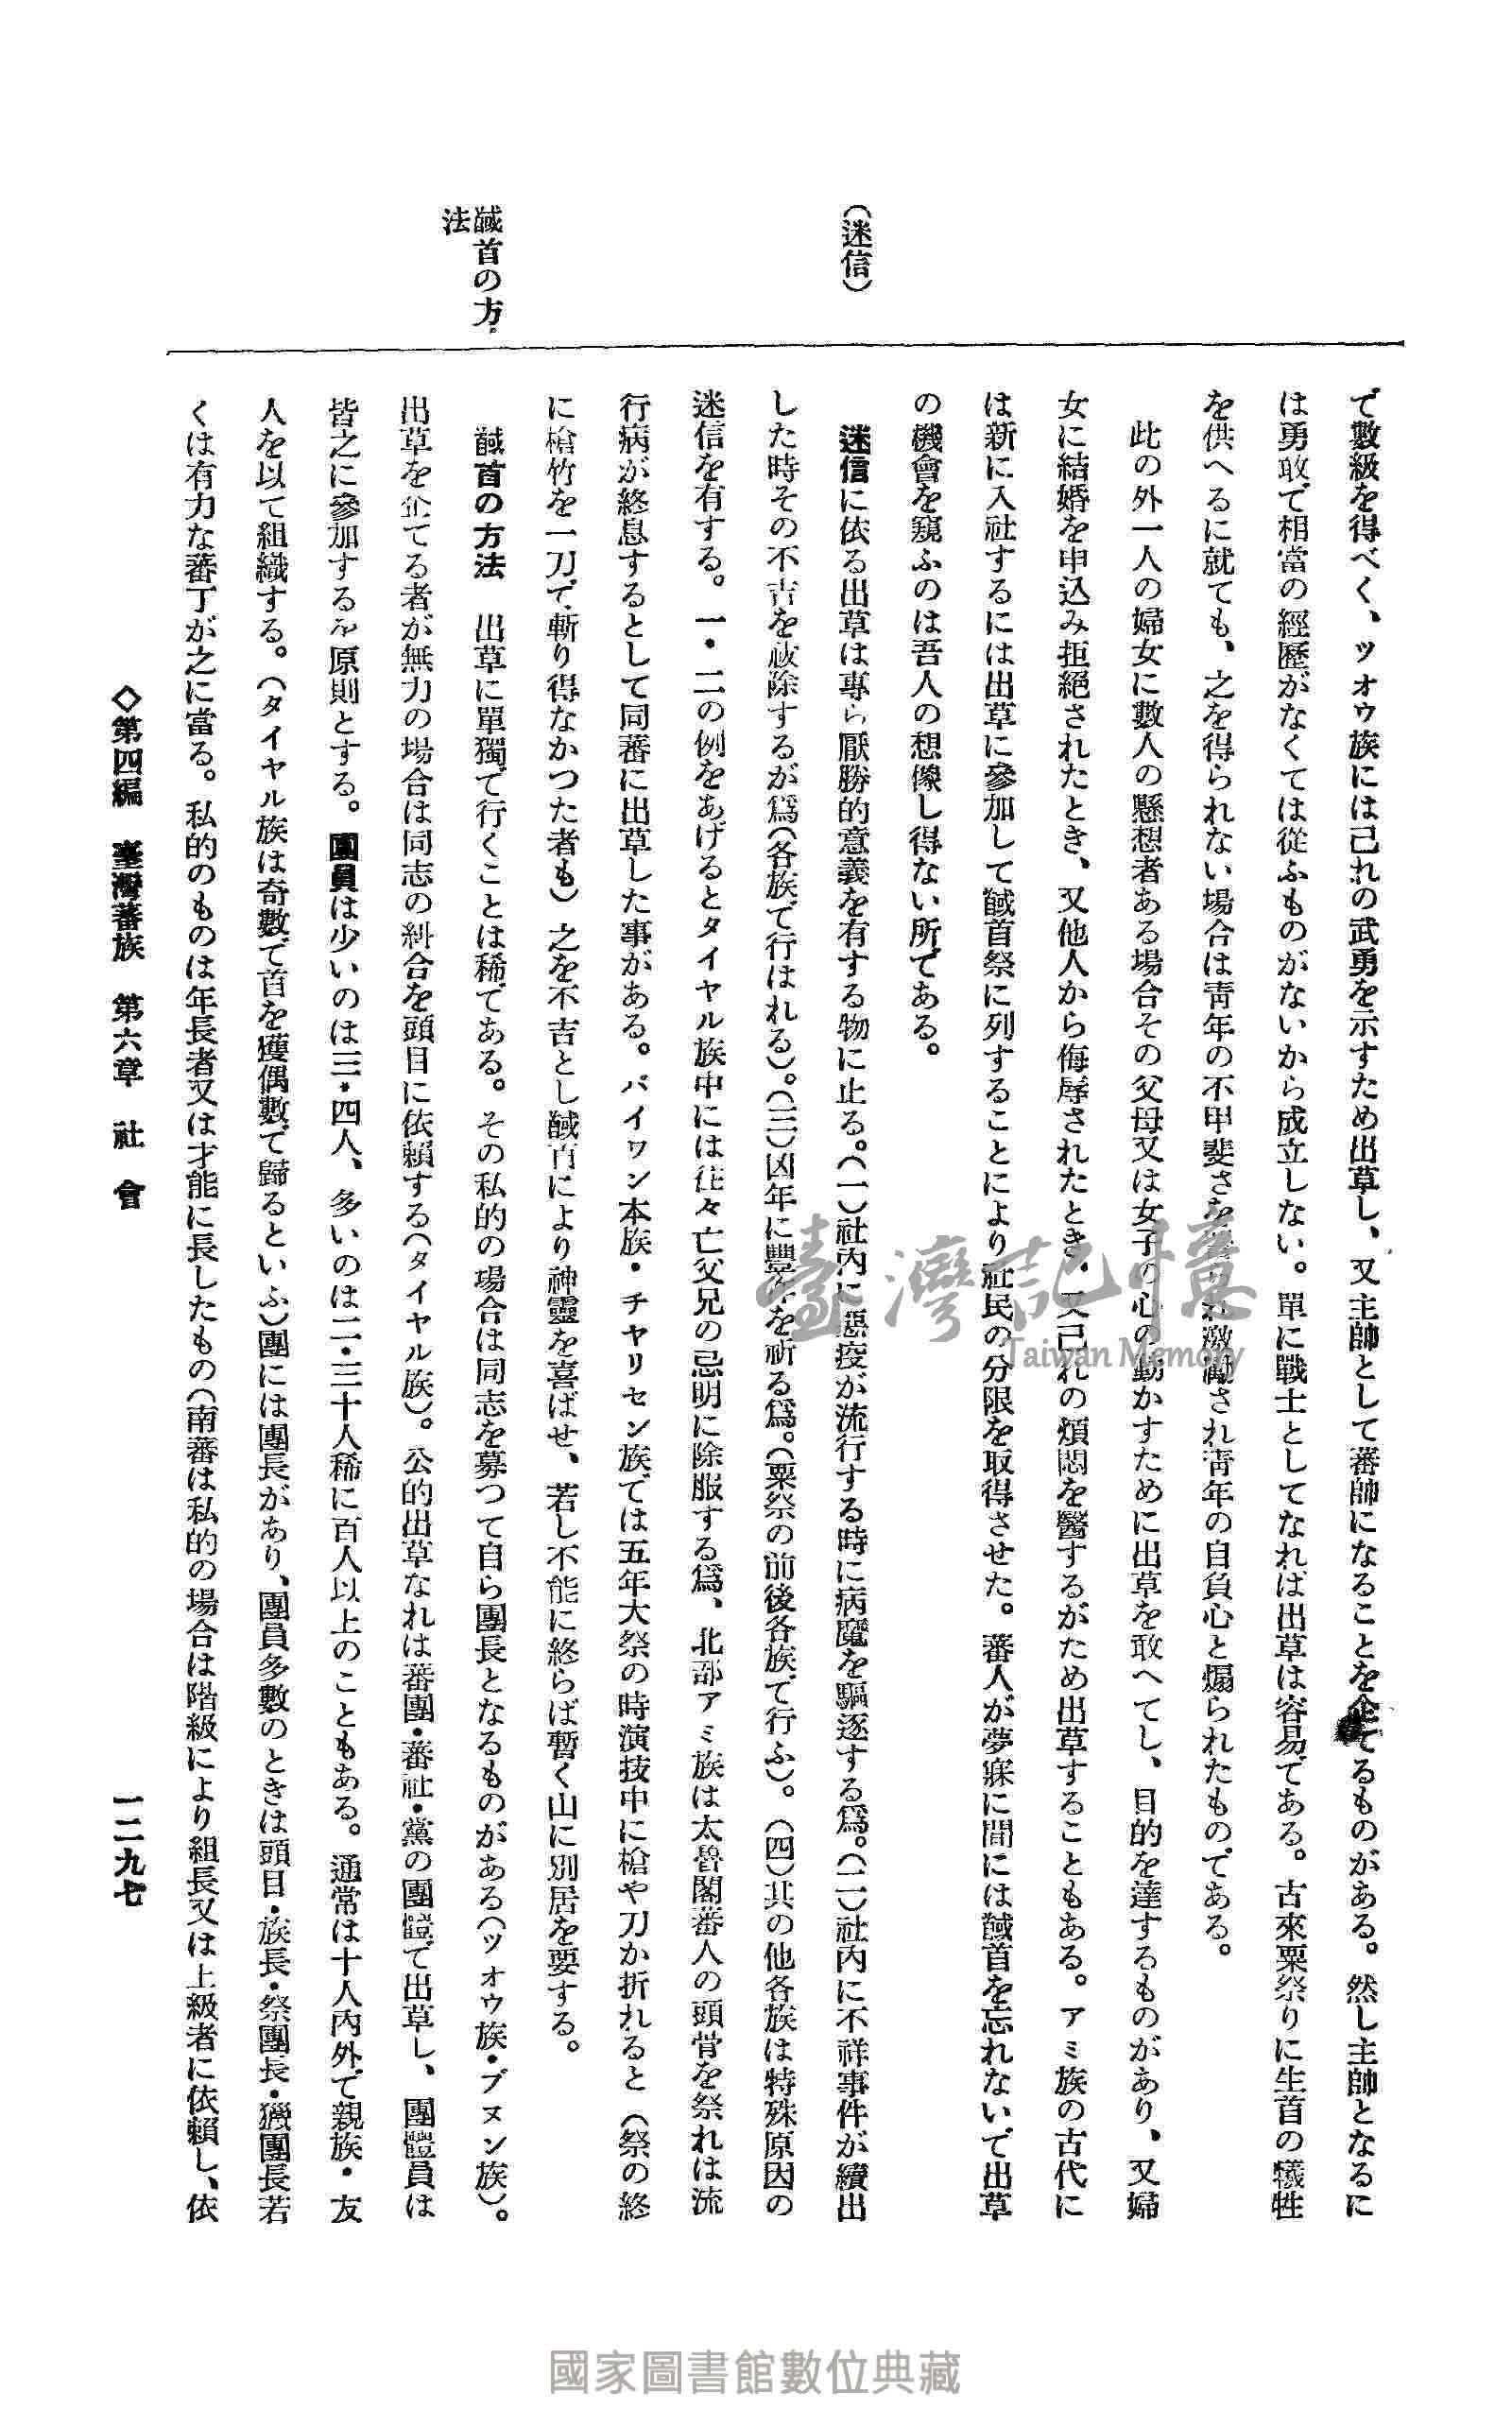 (迷信)
馘首の方
法
で數級を得べく、ツオウ族には己れの武勇を示すため出草し、又主帥として蕃帥になることを企てるものがある。然し主帥となるに
は勇敢で相當の經歷がなくては從ふものがないから成立しない。單に戰士としてなれば出草は容易である。古來粟祭りに生首の犧牲
を供へるに就ても、之を得られない場合は靑年の不甲斐さを激勵され靑年の自負心と煽られたものである。
此の外一人の婦女に數人の懸想者ある場合その父母又は女子の心の動かすために出草を敢へてし、目的を達するものがあり、又婦
女に結婚を申込み拒絕されたとき、又他人から侮辱されたとき、又己れの煩悶を醫するがため出草することもある。アミ族の古代に
は新に入社するには出草に參加して馘首祭に列することにより社民の分限を取得させた。蕃人が夢寐に間には馘首を忘れないで出草
の機會を窺ふのは吾人の想像し得ない所である。
迷信に依る出草は專ら厭勝的意義を有する物に止る。(一)社內に惡疫が流行する時に病魔を驅逐する爲。(二)社內に不祥事件が續出
した時その不吉を祓除するが爲(各族で行はれる)。(三)凶年に豐年を祈る爲。(粟祭の前後各族で行ふ)。(四)其の他各族は特殊原因の
迷信を有する。一・二の例をあげるとタイヤル族中には往々亡父兄の忌明に除服する爲、北部アミ族は太魯閣蕃人の頭骨を祭れは流
行病が終息するとして同蕃に出草した事がある。パイワン本族・チヤリセン族では五年大祭の時演技中に槍や刀か折れると(祭の終
に槍竹を一刀で斬り得なかつた者も)之を不吉とし馘首により神靈を喜ばせ、若し不能に終らば暫く山に別居を要する。
馘首の方法 出草に單獨で行くことは稀である。その私的の場合は同志を募つて自ら團長となるものがある(ツオウ族・ブヌン族)。
出草を企てる者が無力の場合は同志の糾合を頭目に依賴する(タイヤル族)。公的出草なれは蕃團・蕃社・黨の團體で出草し、團體員は
皆之に參加するを原則とする。團員は少いのは三・四人、多いのは二・三十人稀に百人以上のこともある。通常は十人內外で親族・友
人を以て組織する。(タイヤル族は奇數で首を獲偶數で歸るといふ)團には團長があり、團員多數のときは頭目・族長・祭團長・獵團長若
くは有力な蕃丁が之に當る。私的のものは年長者又は才能に長したもの(南蕃は私的の場合は階級により組長又は上級者に依賴し、依
◇第四編 臺灣蕃族 第六章 社會
一二九七
臺灣記憶
Taiwan Memory
國家圖書館數位典藏